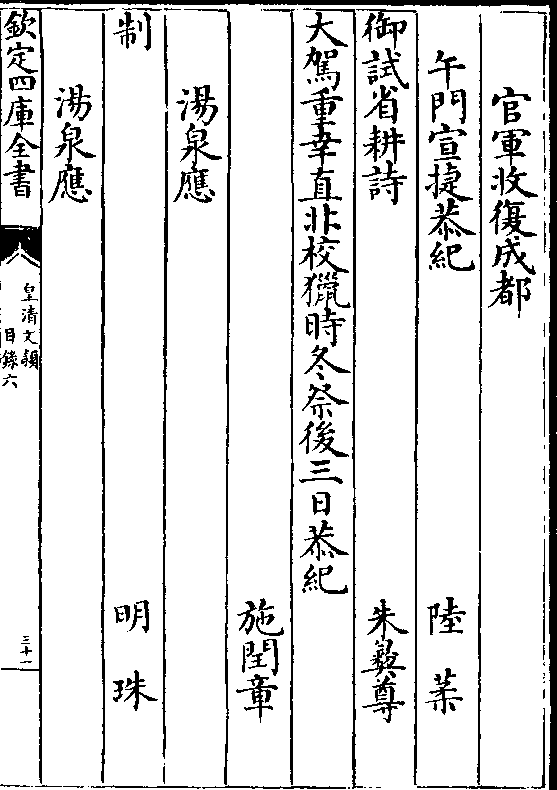 官軍收復成都
午門宣捷恭紀 陸葇
御試省耕詩 朱彝尊
大駕重幸直北校獵時冬祭後三日恭紀
施閏章
湯泉應
制 明珠
湯泉應
欽定四庫全書 皇清文穎 目錄六 三十一